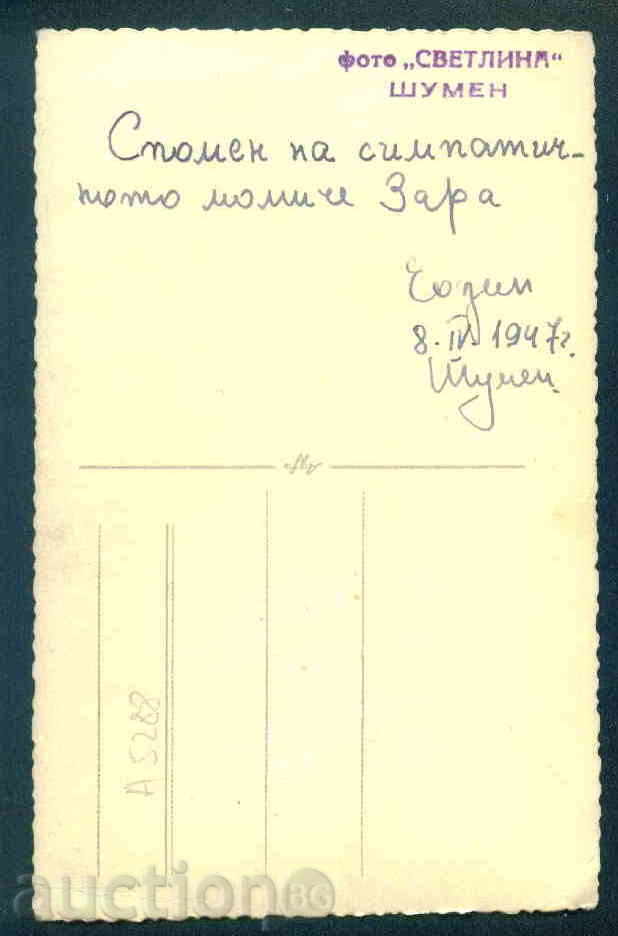 фото „СВЕТЛИНА“
ШУМЕН
Спомен на симпатич-
ното момиче Зара
8. IV. 1947 г.
Шумен
А 5288
auction BG